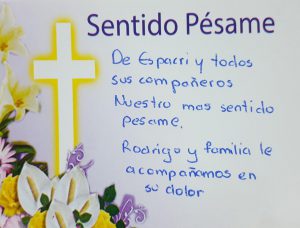 Sentido Pésame
De Esparri y todos
sus compañeros
Nuestro mas sentido
pesame.
Rodrigo y familia le
acompañamos en
su dolor